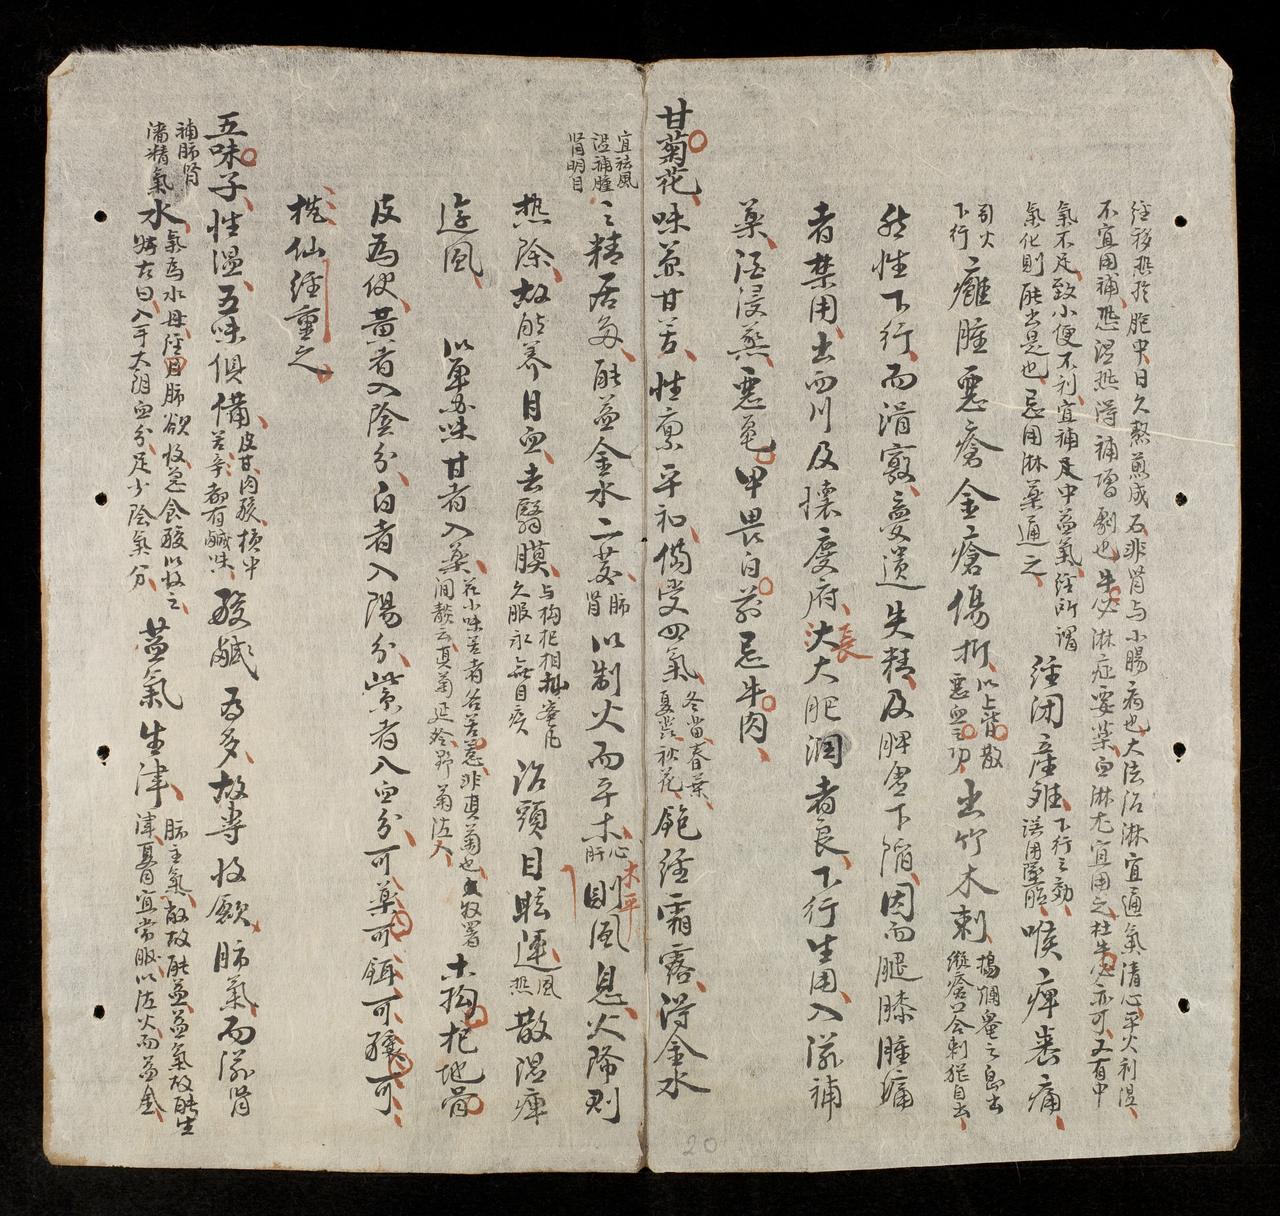 經移热於胞中日久熬煎成石非腎与小腸病也大法治淋宜通氣清心平火利湿
不宜用補恐湿热得補增劇也牛必淋症要藥血淋尤宜用之杜牛必亦可又有中
氣不足致小便不利宜補中益氣經所謂
氣化則能出是也忌用淋藥通之
經闭產难
下行之効
誤用墜胎
喉痺齒痛
引火
下行
癰腫惡瘡金瘡傷折
以上皆散
惡血之功
出竹木刺
搗爛罨之島出
縱瘡口合刺猶自出
然性下行而滑竅夢遺失精及脾虛下陷因而腿膝腫痛
者禁用出四川及壞慶府長大肥潤者良下行生用入滋補
藥酒浸蒸惡龟甲畏白前忌牛肉
甘菊花味兼甘苦性禀平和備受四氣
冬苗春葉
夏蕊秋花
飽經霜露得金水
宜祛風
湿補腫
腎明目
之精居多能益金水二莟
肺
腎
以制火而平木
心
肝
木平
則風息火降則
热除故能养目血去翳膜
与构杞相㩦蜜丸
久服永無目疾
治頭目眩運
風
热
散湿痺
遊風
以单为味甘者入藥
花小味苦者名苦薏非真菊也牧署
闻談云真菊延齡野菊泄人
朮枸杞地骨
皮為使黃者入陰分白者入陽分紫者入血分可藥可餌可釀可
枕仙經重之
五味子性温五味俱備
皮甘肉酸核中
苦辛都有鹹味
酸鹹为多故專收歛肺氣而滋腎
補肺腎
濇精氣
水
氣為水母經曰肺欲收急食酸以收之
好古曰入手太阴血分足少陰氣分
益氣生津
肺主氣歛故能益益氣故能生
津夏月宜常服以泄火而益金
20